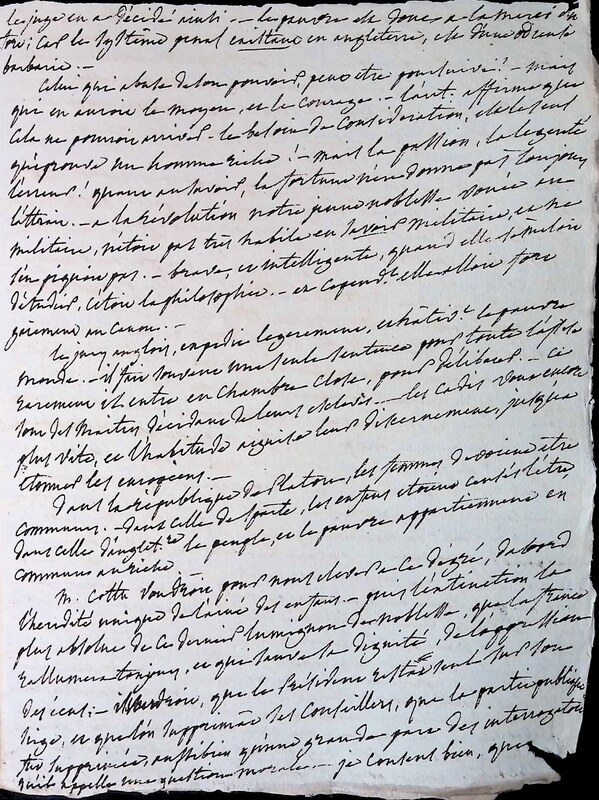 le juge en a décidé ainsi. — le pauvre est donc a la merci du
tout; car le systême penal existant en angleterre, est d'une odieuse
barbarie. —
Celui qui abuse de son pouvoir, peut etre poursuivi! — mais
qui en auroit le moyen, et le courage. — l'aut. affirme que
Cela ne pourroit arriver. le besoin de Consideration, est le seul
qu'éprouve un homme riche! — mais la passion, la legereté
l'erreur! quant au savoir, la fortune n'en donne pas toujours
l'attrait. — a la révolution notre jeune noblesse vouée au
militaire, n'étoit pas très habile en savoir militaire, et ne
s'en piquoit pas. — brave, et intelligente, quand elle se mêloit
d'étudier, c'étoit la philosophie. — et cepend.t elle alloit fort
gaiement au Canon. —
le jury anglois, expedie legerement, le pauvre
monde. — il fait souvent une seule sentence pour toute la
rarement il entre en Chambre close, pour délibérer. — Ce
sont des Maîtres décidant de leurs esclaves — les Cadis vont encore
plus vite, et l'habitude aiguise leur discernement, jusqu'à
étonner les européens. —
dans la république de Platon, les femmes devoient être
communes. — dans celle de sparte, les enfans étoient censés l'être,
dans celle d'anglet.re le peuple, et le pauvre appartiennent en
commun au riche.
M. Cottu voudroit pour nous elever a ce dégré, d'abord
l'heredité unique de l'ainé des enfans — puis l'extinction la
plus absolue de ce dernier lumignon de noblesse, que la france
rallumera toujours, et qui sauve la dignité, de l'oppression
des écus; — il voudroit, que le Président restât seul sur son
siege, et que l'on supprimât ses Conseillers, que la partie publique
fut supprimée, aussi bien qu'une grande part des interrogatoires
qu'il appelle une question morale. — je Consens bien, que